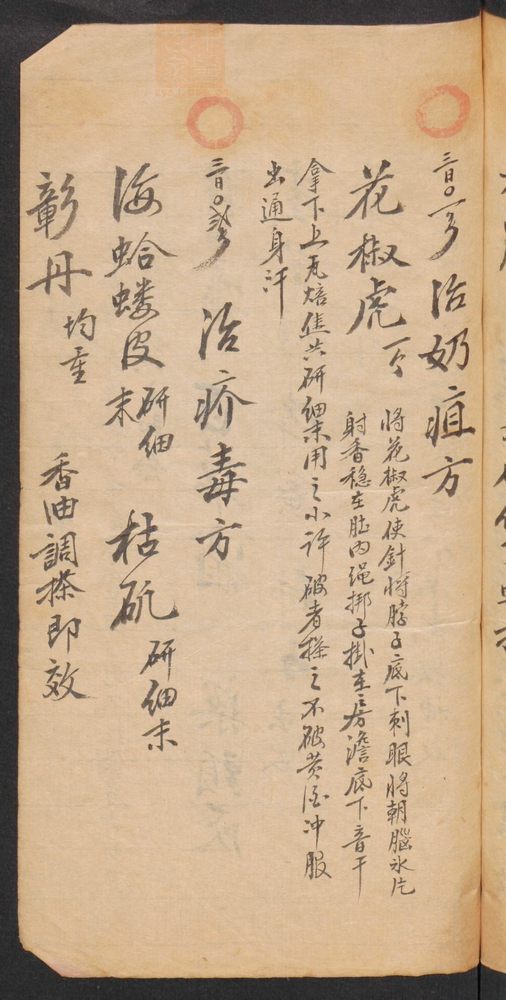 治奶疽方
花椒虎一个
將花椒虎使針將脖子底下刺眼將朝腦氷片
射香穩在肚内绳挷子掛在房簷底下音干
拿下上瓦焙焦共研細末用之小許破者搽之不破黄酒冲服
出通身汗
治疥毒方
海蛤蝼皮研細末 枯矾研細末
彰丹均重 香油調搽即效